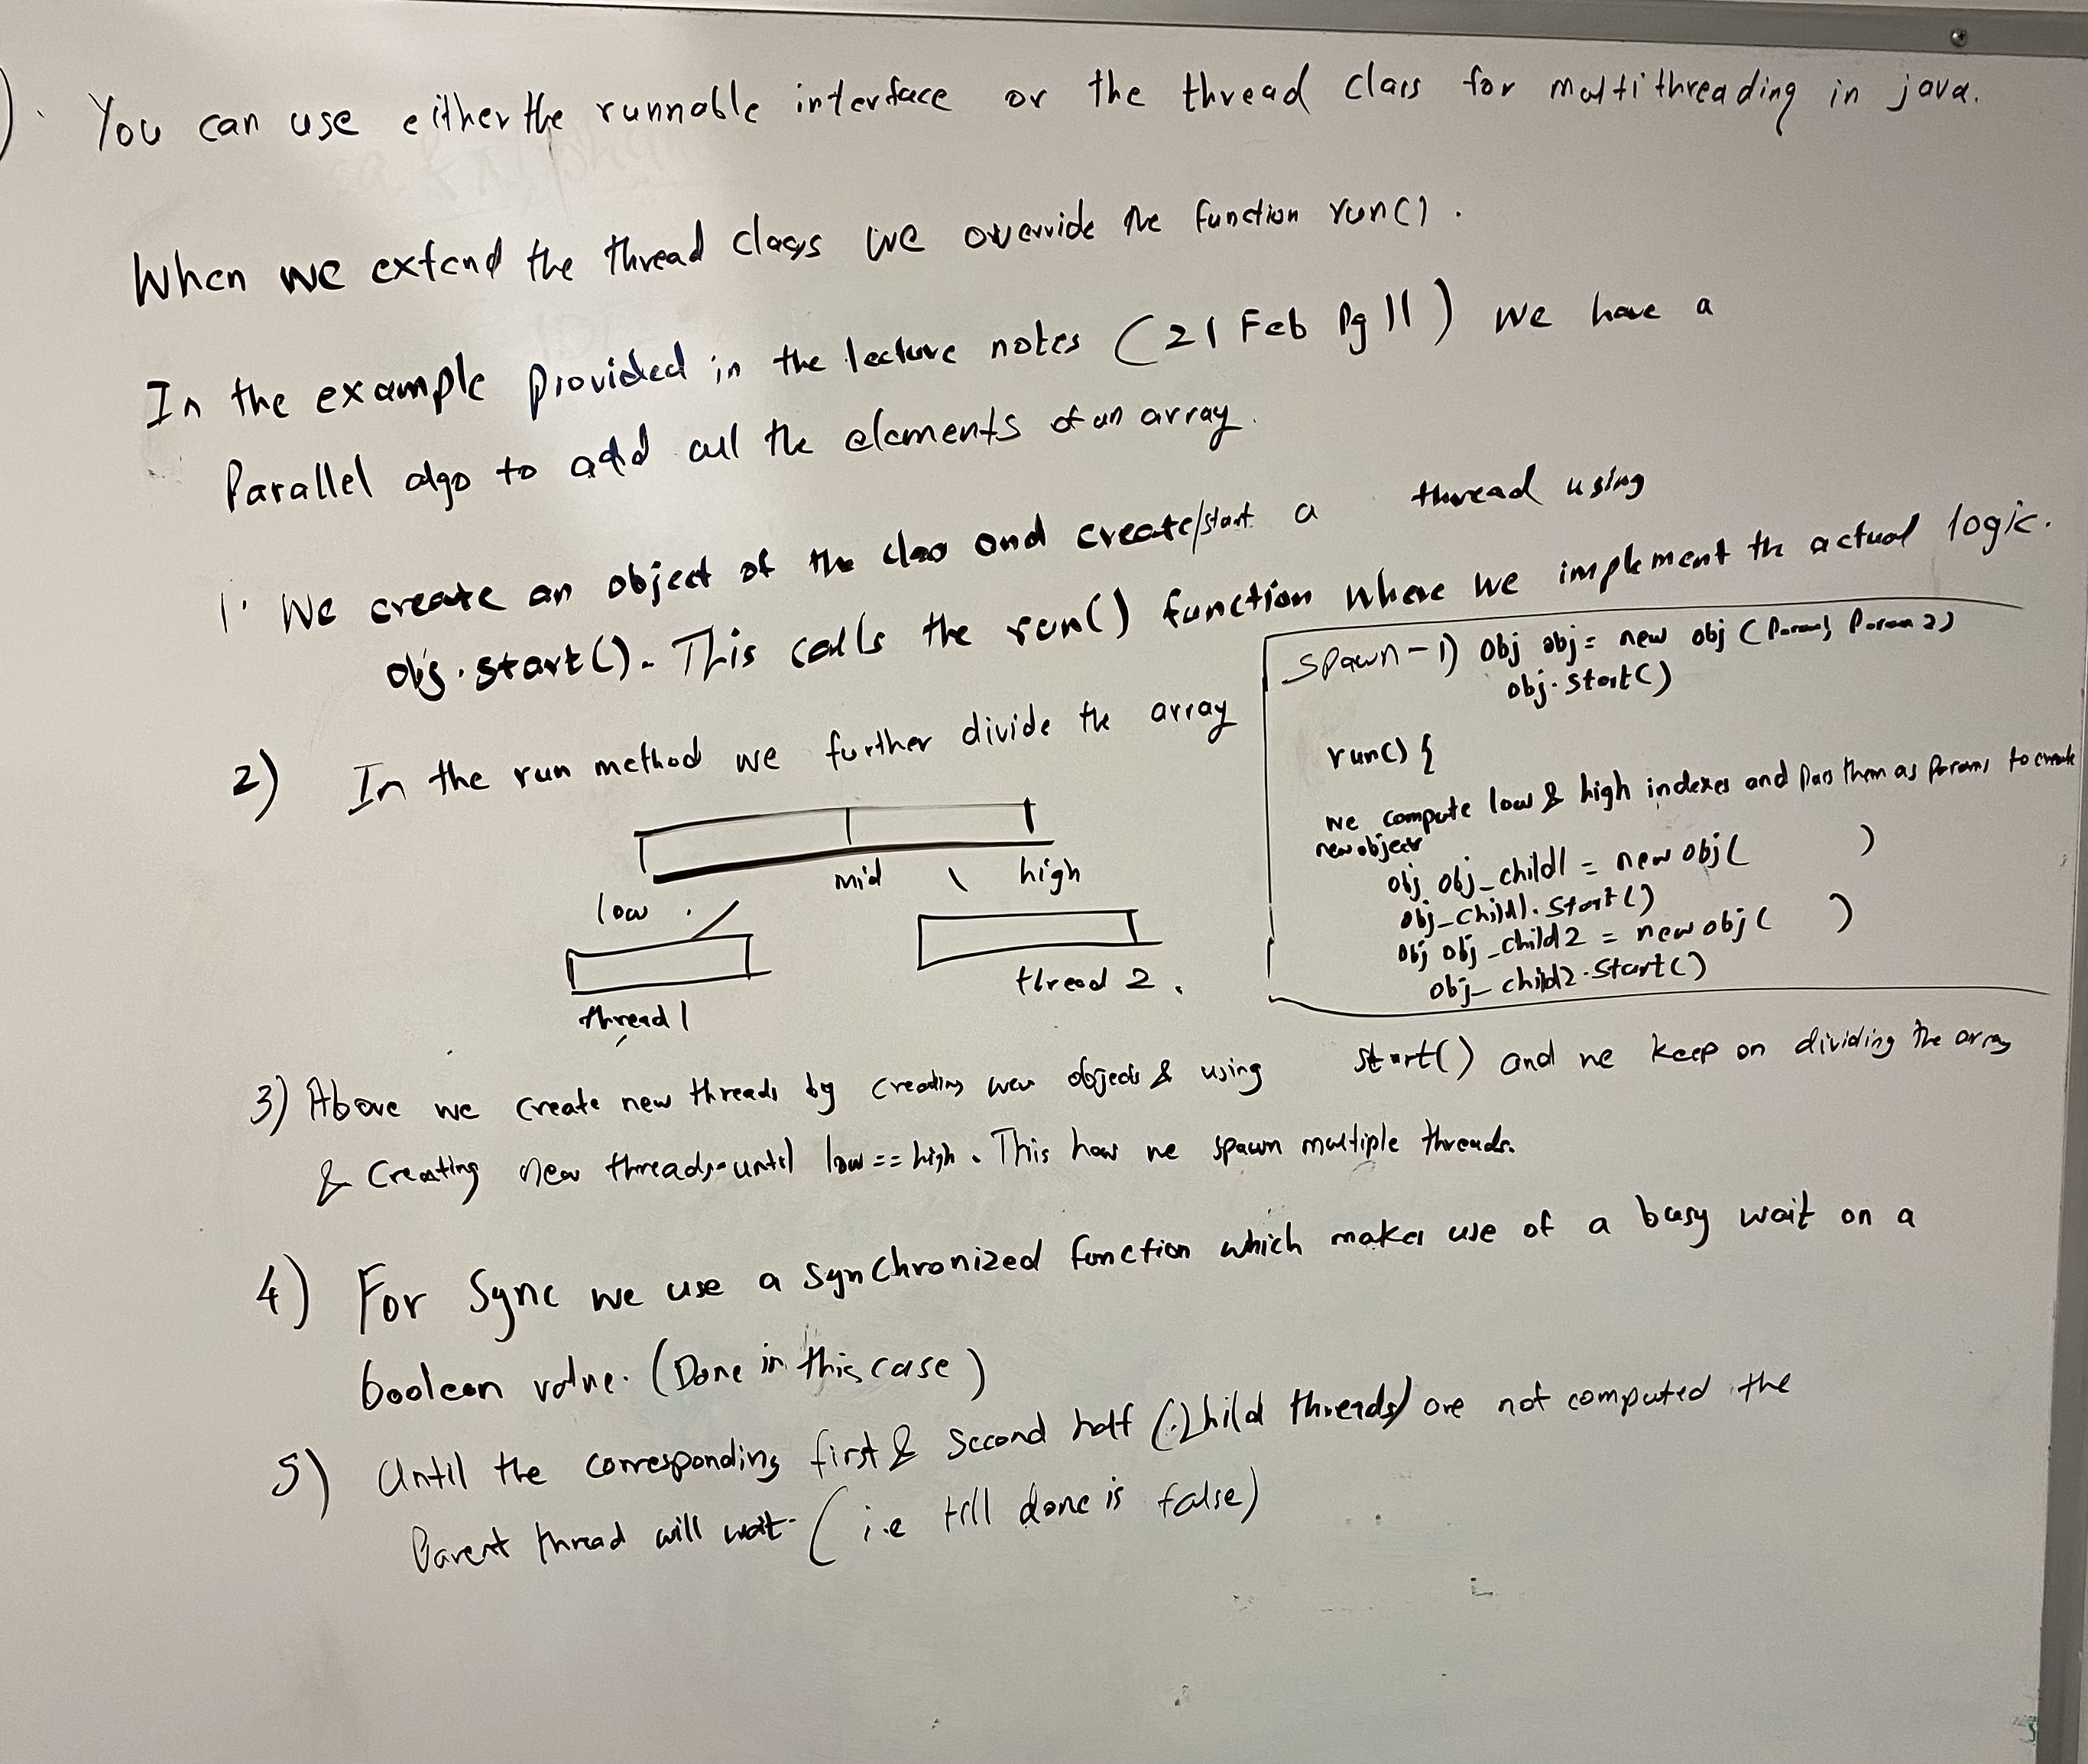 You can use either the runnable interface or the thread class for multithreading in java.
When we extend the thread class we override the function run().
In the example provided in the lecture notes (21 Feb Pg 11) we have a
Parallel algo to add all the elements of an array.
1. We create an object of the class and create/start a thread using
obj.start(). This calls the run() function where we implement the actual logic.
Spawn-1) obj obj = new obj (Param1, Param 2)
obj.start()
2) In the run method we further divide the array
run() {
we compute low & high indexes and pass them as params to create
new objects
obj obj_child1 = new obj( )
obj_child1.start()
obj obj_child2 = new obj( )
obj_child2.start()
low mid high
thread 1 thread 2.
3) Above we create new threads by creating new objects & using start() and we keep on dividing the array
& creating new threads until low == high. This how we spawn multiple threads.
4) For Sync we use a synchronized function which makes use of a busy wait on a
boolean value. (Done in this case)
5) Until the corresponding first & second half (child threads) are not computed the
Parent thread will wait. (i.e till done is false)